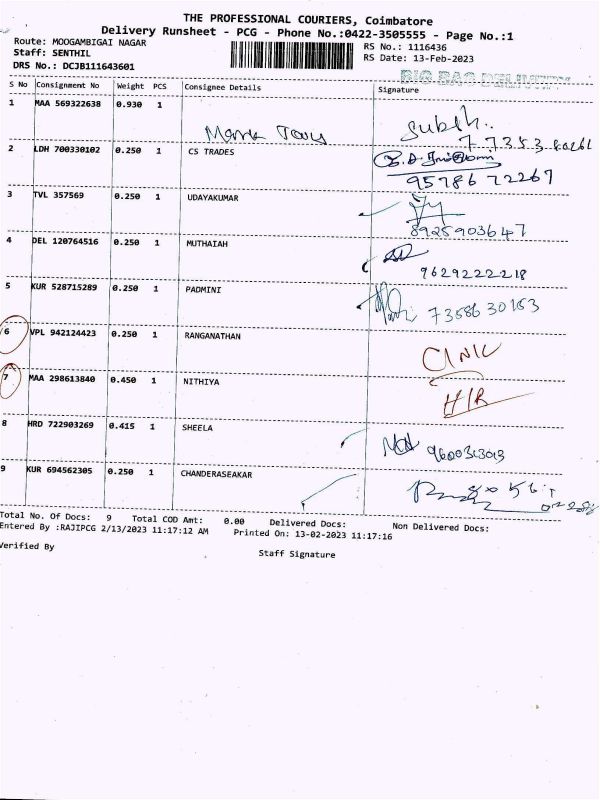 THE PROFESSIONAL COURIERS, Coimbatore
Delivery Runsheet - PCG - Phone No.:0422-3505555 - Page No.:1
Route: MOOGAMBIGAI NAGAR
Staff: SENTHIL
DRS No.: DCJB111643601
RS No.: 1116436
RS Date: 13-Feb-2023
BIG BAG DELIVERY
S No Consignment No Weight PCS Consignee Details Signature
1 MAA 569322638 0.930 1
Subth..
2 LDH 700330102 0.250 1 CS TRADES
95786 72267
3 TVL 357569 0.250 1 UDAYAKUMAR
8925903647
4 DEL 120764516 0.250 1 MUTHAIAH
9629222218
5 KUR 528715289 0.250 1 PADMINI
73586 30153
6 VPL 942124423 0.250 1 RANGANATHAN
CLINIC
7 MAA 298613840 0.450 1 NITHIYA
H/R
8 HRD 722903269 0.415 1 SHEELA
9 KUR 694562305 0.250 1 CHANDERASEAKAR
Total No. Of Docs: 9 Total COD Amt: 0.00 Delivered Docs: Non Delivered Docs:
Entered By :RAJIPCG 2/13/2023 11:17:12 AM Printed On: 13-02-2023 11:17:16
Verified By
Staff Signature